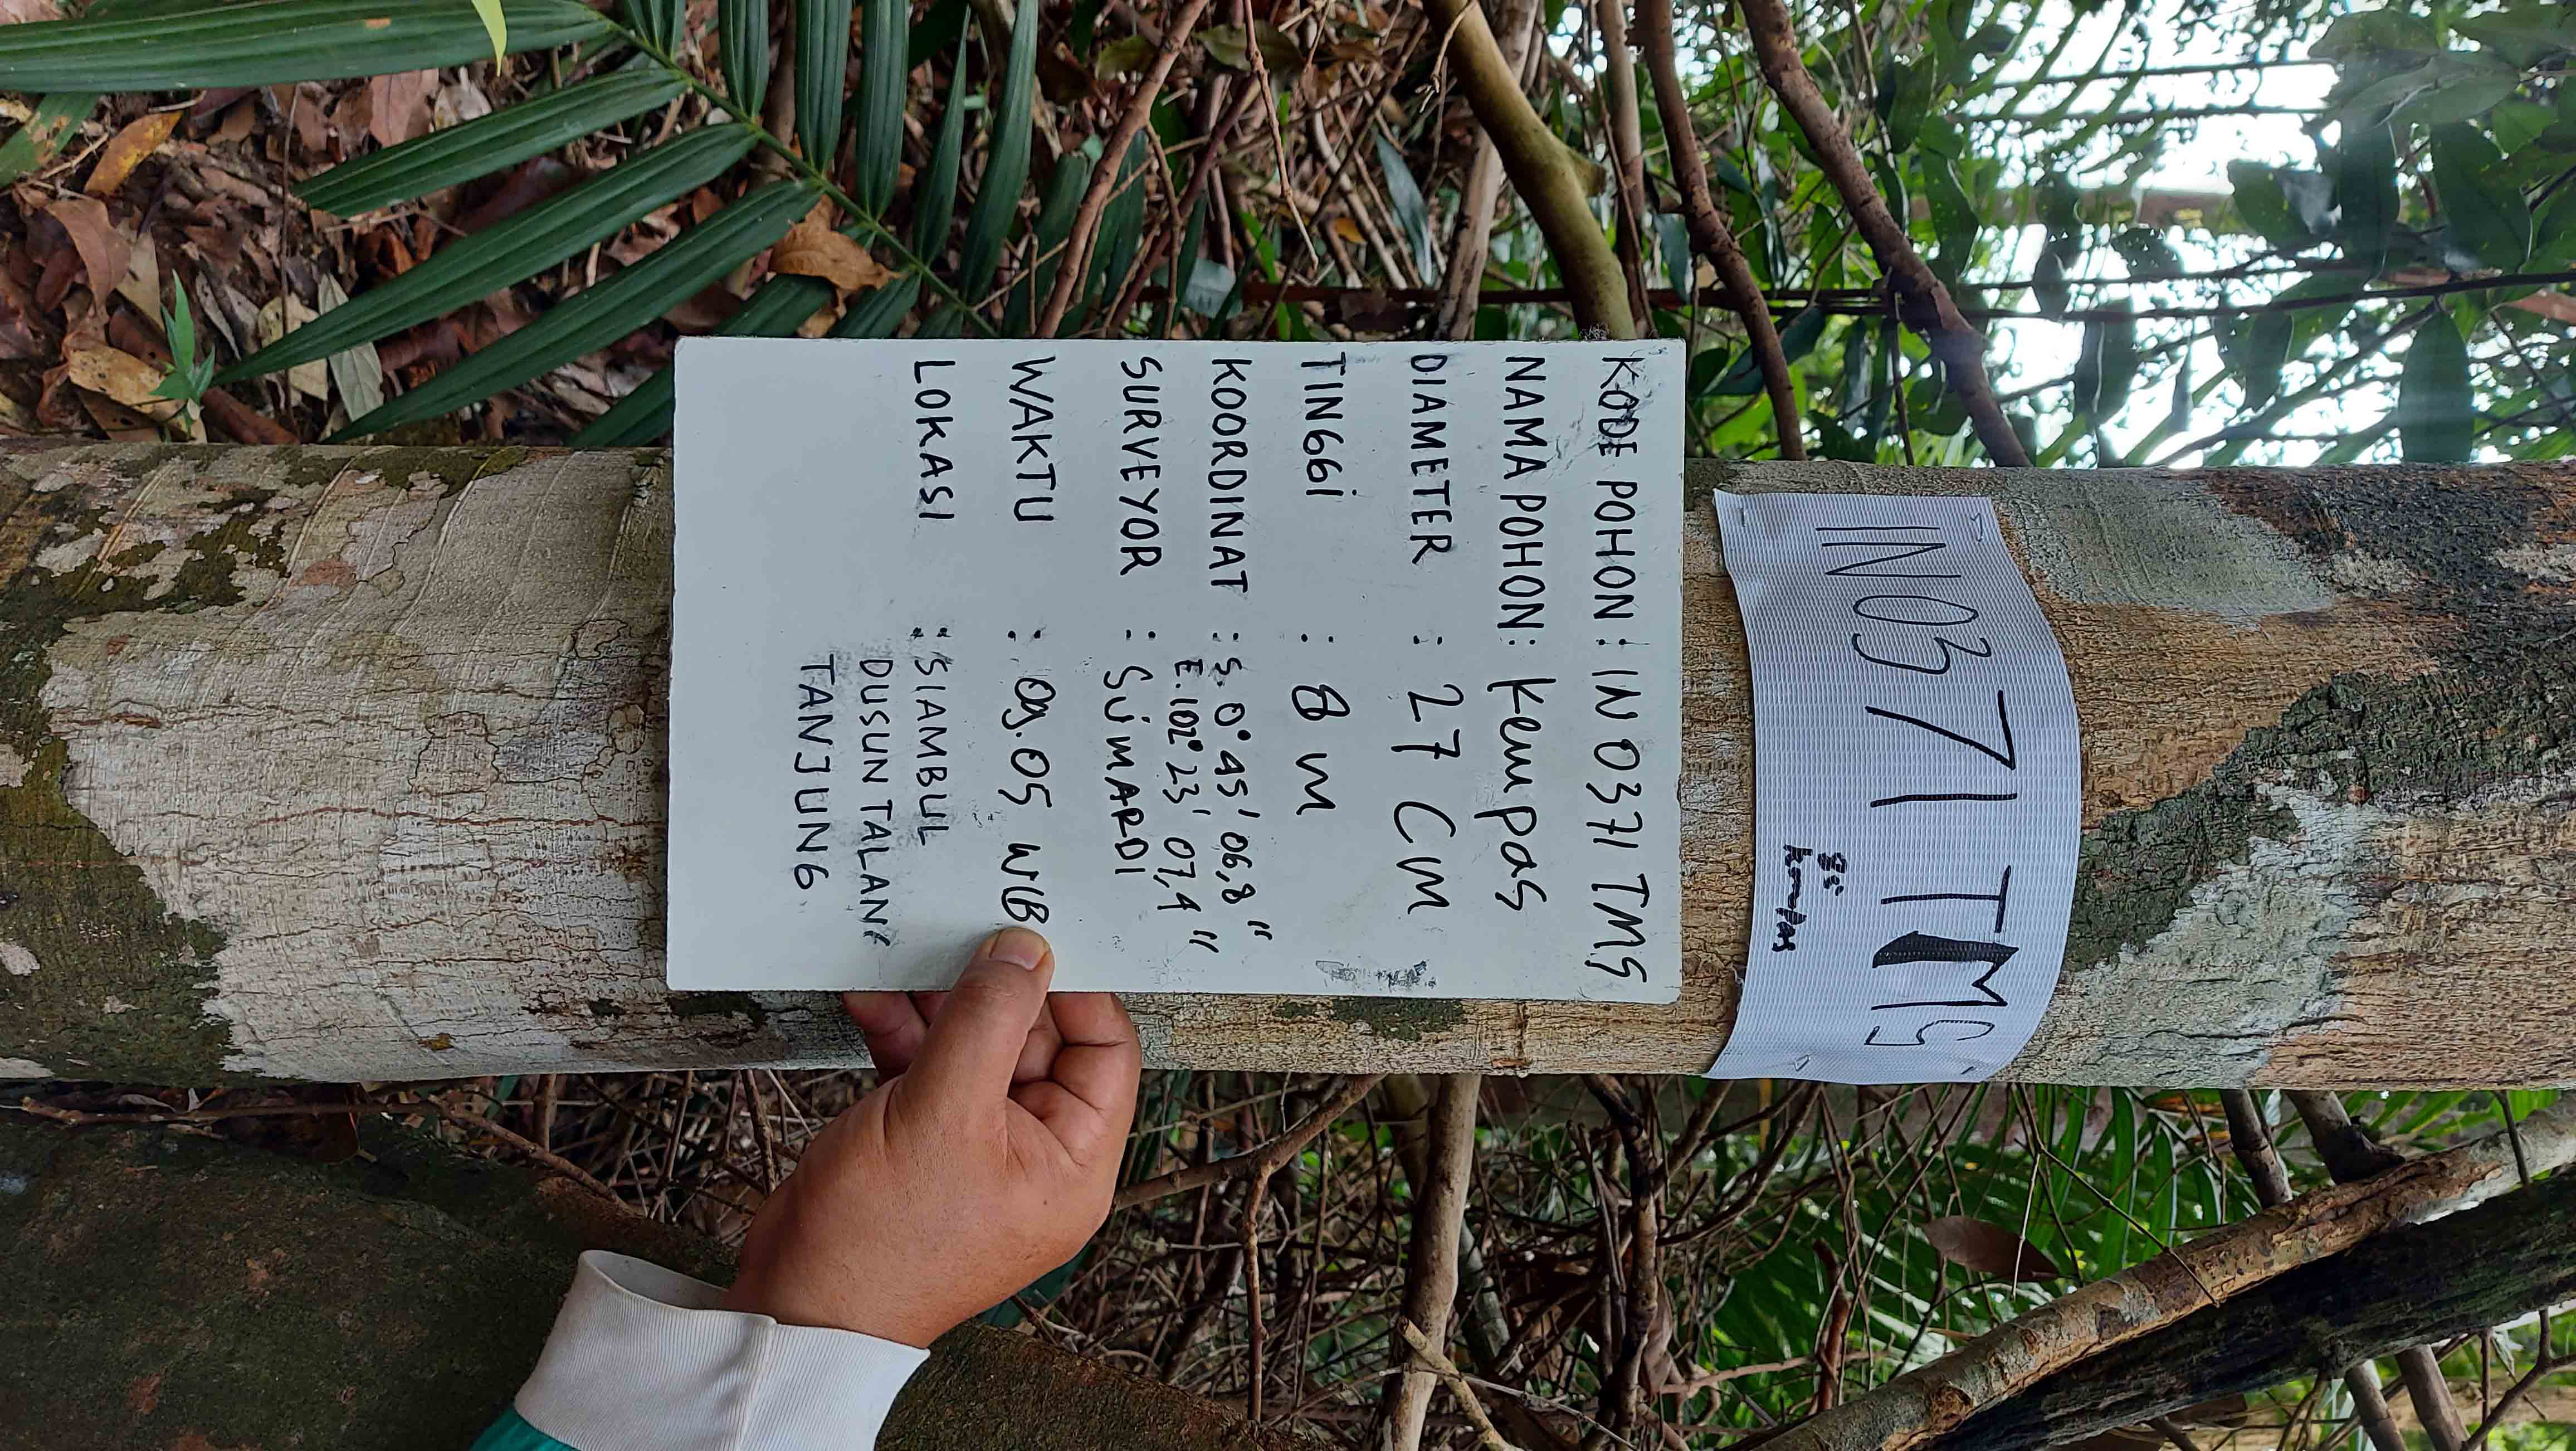 IN0371 TMS
kempas
KODE POHON : IN 0371 TMS
NAMA POHON : Kempas
DIAMETER : 27 CM
TINGGI : 8 m
KOORDINAT : S. 0° 45' 06,8"
E. 102° 23' 07,4"
SURVEYOR : SUMARDI
WAKTU : 09.05 WIB
LOKASI : SIAMBUL
DUSUN TALANG
TANJUNG